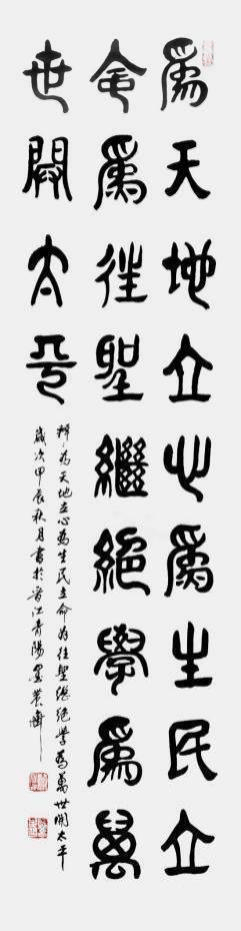 爲天地立心爲生民立
命爲往聖繼絕學爲萬
世開太平
釋為天地立心為生民立命為往聖繼絕學為萬世開太平
歲次甲辰秋月書於晉江青陽